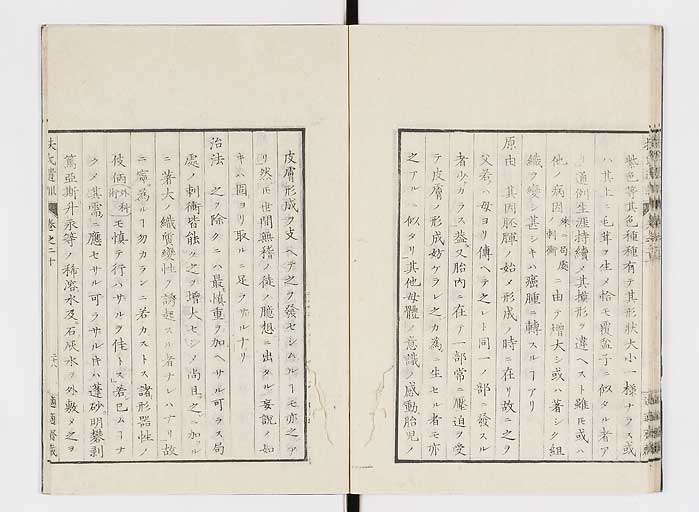 紫色等其色種種有テ其形狀大小一樣ナラス或
ハ其上ニ毛茸ヲ生メ恰モ覆盆子ニ似タル者ア
リ通例生涯持續メ其摸形ヲ違ヘスト雖𪜈或ハ
他ノ病因殊ニ局處ノ刺衝ニ由テ增大シ或ハ著シク組
織ヲ變シ甚シキハ癌腫ニ轉スルヿアリ
原由 其因胚胎ノ始メ形成ノ時ニ在リ故ニ之ヲ
父若ハ母ヨリ傳ヘテ之レト同一ノ部ニ發スル
者少カラス蓋又胎内ニ在テ一部常ニ壓迫ヲ受
テ皮膚ノ形成妨ケラレ之カ為ニ生セル者モ亦
之アルニ似タリ其他母體ノ意識ノ感動胎兒ノ
皮膚形成ヲ支ヘテ之ヲ發セシムルヿモ亦之ア
リ然𪜈世間無稽ノ徒ノ臆想ニ出タル妄說ノ如
キハ固ヨリ取ルニ足ラサルナリ
治法 之ヲ除クニハ最慎重ヲ加ヘサル可ラス局
處ノ刺衝皆能ク之ヲ增大セシメ尚且之ニ加フル
ニ著大ノ織質變性ヲ誘起スル者ナレハナリ故
ニ寧為ルヿ勿カランニ若カストス諸形器性ノ
伎倆外科術モ慎テ行ハサルヲ佳トス若已ムヿナ
クメ其需ニ應セサル可ラサル𪜈ハ蓬砂明礬剥
篤亞斯升汞等ノ稀溶水及石灰水ヲ外敷メ之ヲ
扶氏
卷之二十
適適齋藏